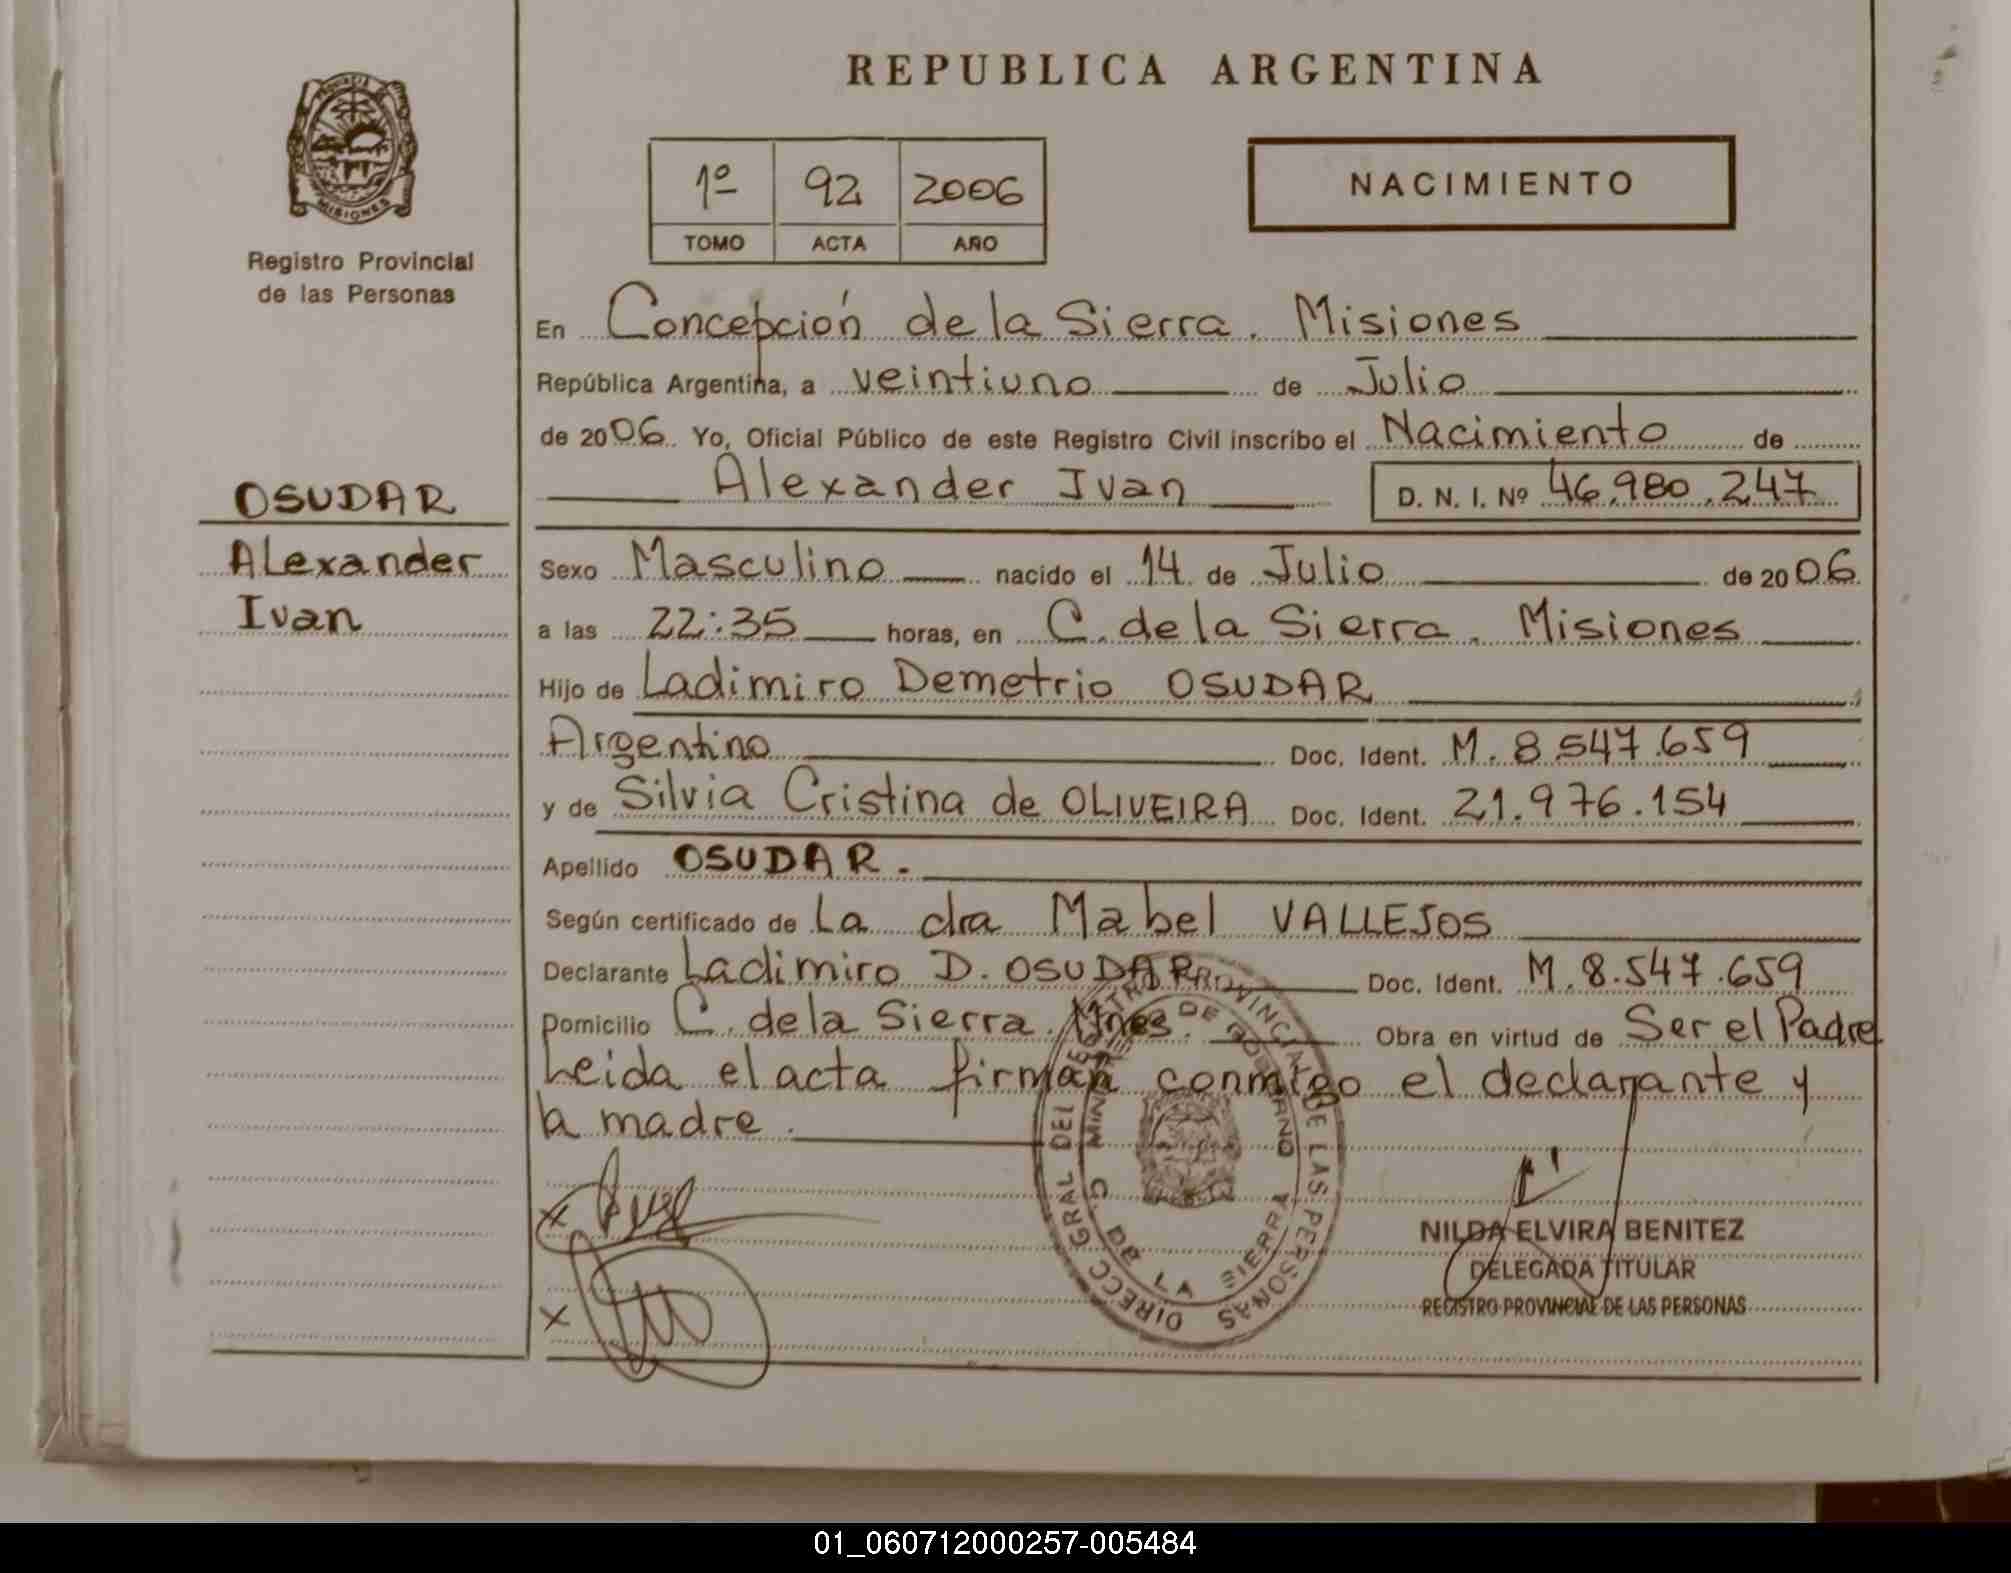 REPUBLICA ARGENTINA
PROVINCIA DE
MISIONES
Registro Provincial
de las Personas
1º 92 2006
TOMO ACTA AÑO
NACIMIENTO
En Concepción de la Sierra. Misiones
República Argentina, a veintiuno de Julio
de 2006 Yo, Oficial Público de este Registro Civil inscribo el Nacimiento de
Alexander Ivan D. N. I. Nº 46.980.247
OSUDAR
Alexander
Ivan
Sexo Masculino nacido el 14 de Julio de 2006
a las 22:35 horas, en C. de la Sierra. Misiones
Hijo de Ladimiro Demetrio OSUDAR
Argentino Doc. Ident. M. 8.547.659
y de Silvia Cristina de OLIVEIRA Doc. Ident. 21.976.154
Apellido OSUDAR.
Según certificado de La dra Mabel VALLEJOS
Declarante Ladimiro D. OSUDAR Doc. Ident. M. 8.547.659
Domicilio C. de la Sierra. Mnes. Obra en virtud de Ser el Padre
Leida el acta firman conmigo el declarante y
la madre.
DIRECC GRAL DEL REGISTRO PROVINCIAL DE LAS PERSONAS
MINISTERIO DE GOBIERNO
C. DE LA SIERRA
x
x
NILDA ELVIRA BENITEZ
DELEGADA TITULAR
REGISTRO PROVINCIAL DE LAS PERSONAS
01_060712000257-005484